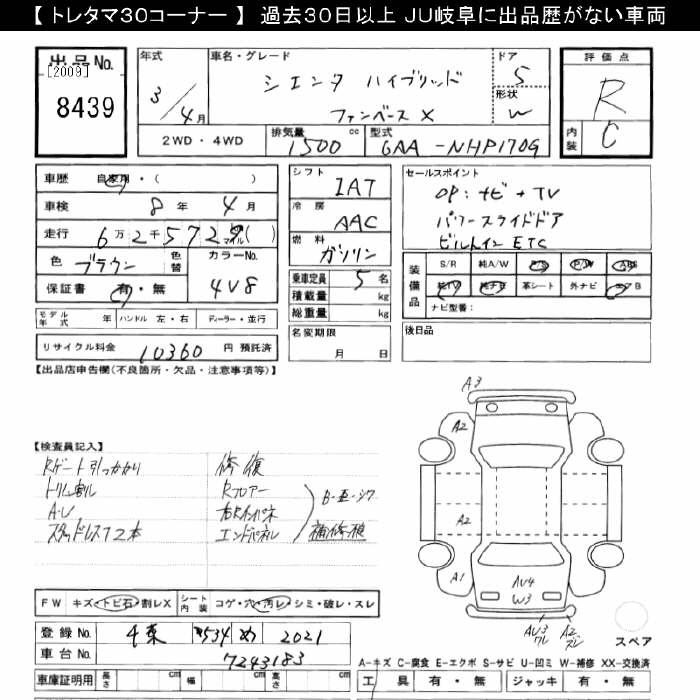 【トレタマ30コーナー】 過去30日以上 JU岐阜に出品歴がない車両
出品No.
[2009]
8439
年式
3/4月
車名・グレード
シエンタ ハイブリッド
ファンベース X
ドア
5
形状
W
評価点
R
内装
C
2WD・4WD
排気量
1500 cc
型式
6AA-NHP170G
車歴 自家用・( )
車検 8年 4月
走行 6万2千572
マイル( )
色 ブラウン
色替
カラーNo.
4V8
保証書 有・無
シフト
IAT
冷房
AAC
燃料
ガソリン
乗車定員 5名
積載量 kg
総重量 kg
セールスポイント
OP:ナビ+TV
パワースライドドア
ビルトインETC
装備品
S/R 純A/W P/S P/W ABS
純TV 純ナビ 革シート 外ナビ エアB
ナビ型番:
モデル年式 年
ハンドル 左・右
ディーラー・並行
名変期限
月 日
後日品
リサイクル料金 10360 円 預託済
【出品店申告欄(不良箇所・欠品・注意事項等)】
【検査員記入】
Rゲート引っかかり
トリム割
A・U
スタッドレスT2本
修復
Rフロアー
右Rインパネ
エンドパネル
補修痕
A3
A2
A2
A1
AU4
W3
AU3
ワレ
A2
スペア
FW キズ・トビ石・割レX
シート内装 コゲ・穴・汚レ・シミ・破レ・スレ
登録No. 534 め 2021
車台No. 7243183
車庫証明用 長さ cm 幅 cm 高さ cm
A-キズ C-腐食 E-エクボ S-サビ U-凹ミ W-補修 XX-交換済
工具 有・無 ジャッキ 有・無